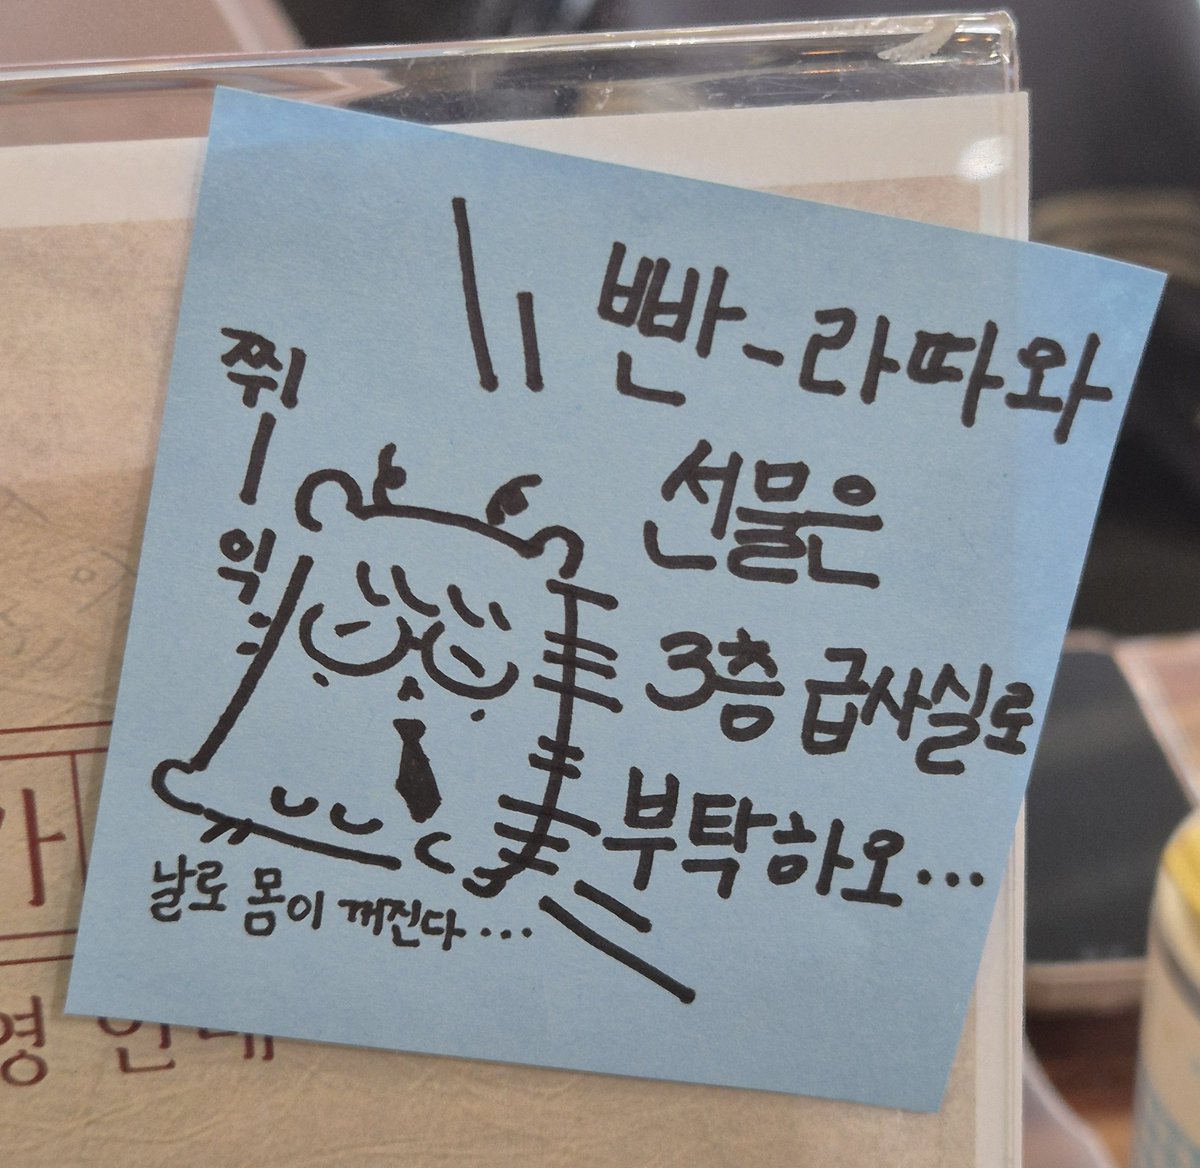 빤-라따와
선물은
3층 급사실로
부탁하오...
쮜
ㅣ
익
날로 몸이 꺼진다...